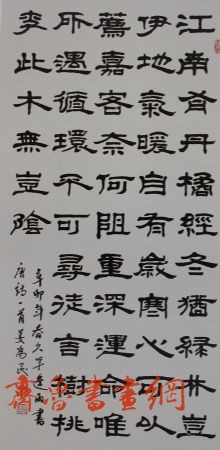 江南有丹橘經冬猶綠林豈
伊地氣暖自有歲寒心可以
薦嘉客奈何阻重深運命唯
所遇循環不可尋徒言樹桃
李此木無豈陰
辛卯年春久旱逢雨書
唐詩一首姜為民
齊魯書畫網